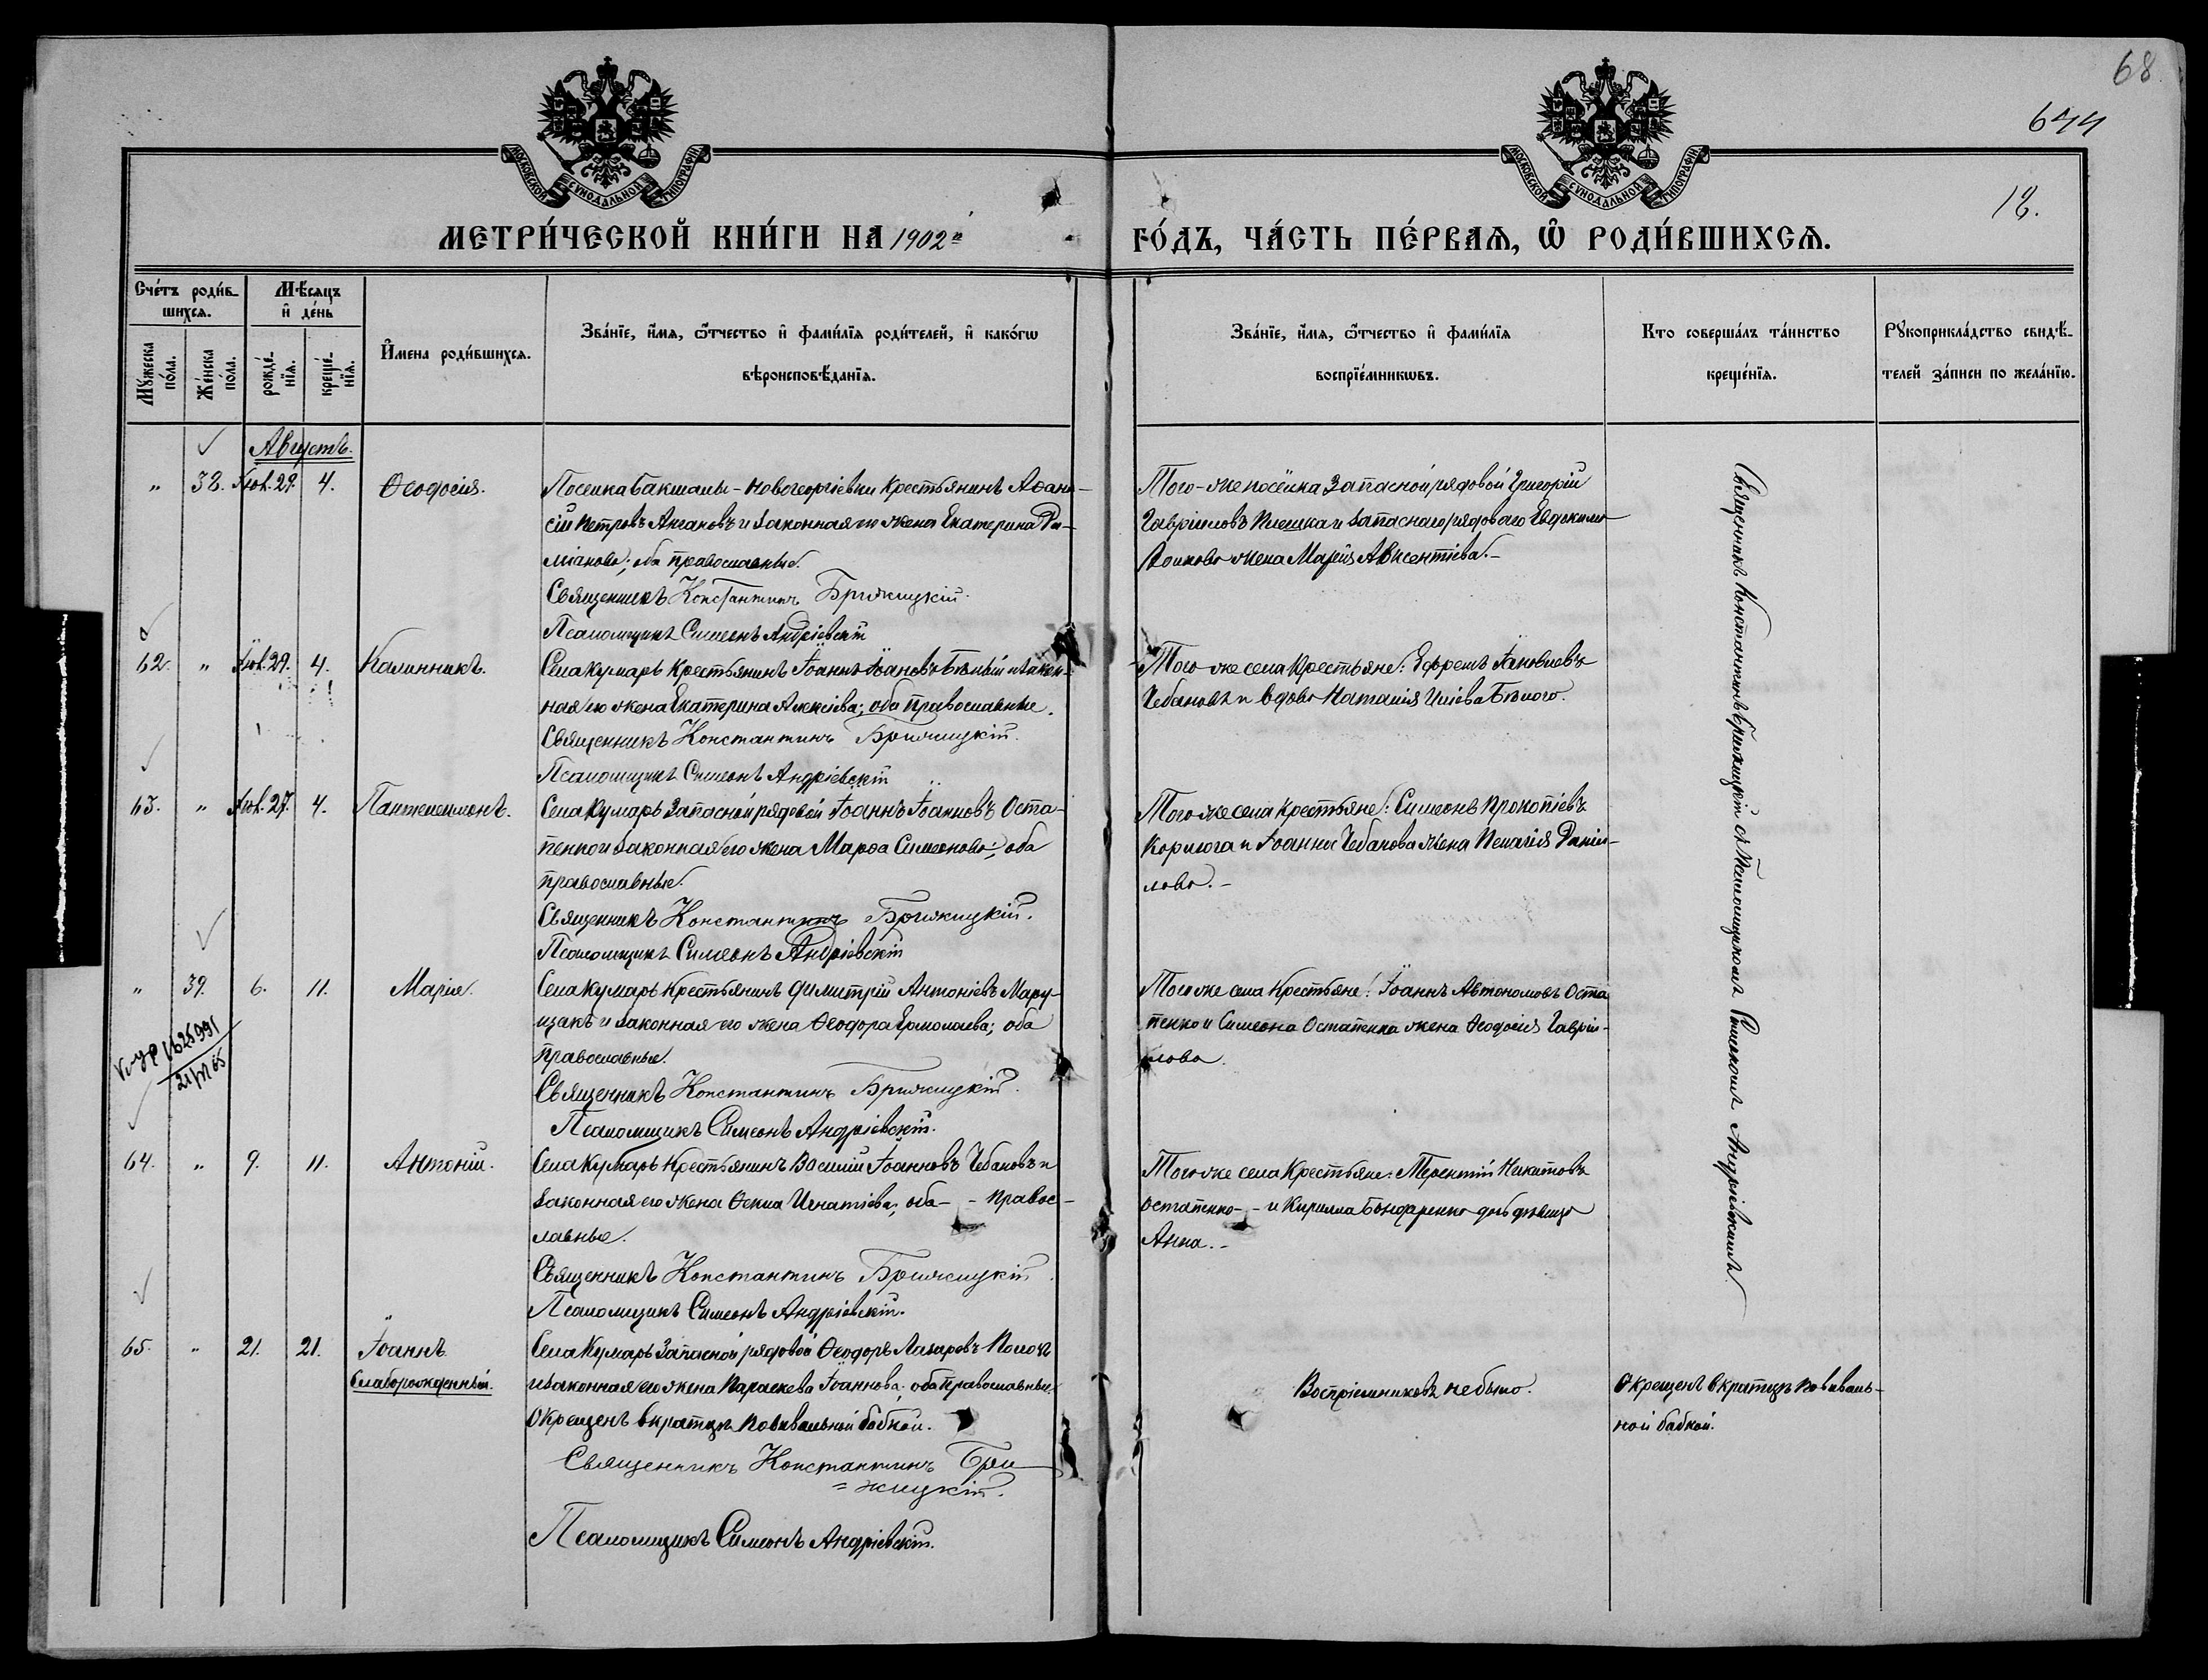 68
644
18.
МОСКОВСКОЙ СУНОДАЛЬНОЙ ТИПОГРАФІИ
МОСКОВСКОЙ СУНОДАЛЬНОЙ ТИПОГРАФІИ
МЕТРИ́ЧЕСКОЙ КНИ́ГИ НА 1902й ГО́ДЪ, ЧА́СТЬ ПЕ́РВАѦ, Ѡ РОДИ́ВШИХСѦ.
Сче́тъ роди́в-
шихсѧ.
Мѣ́сѧцъ
и де́нь
Мꙋ́жеска по́ла.
Же́нска по́ла.
рожде́-
нїѧ.
креще́-
нїѧ.
И́мена роди́вшихсѧ.
Зва́нїе, и́мѧ, ѻ́тчество и фами́лїѧ роди́телей, и како́гѡ
вѣроисповѣ́данїѧ.
Зва́нїе, и́мѧ, ѻ́тчество и фами́лїѧ
воспрїе́мникѡвъ.
Кто соверша́лъ та́инство
креще́нїѧ.
Рꙋкоприкла́дство свидѣ́-
телей за́писи по жела́нїю.
Августъ.
" 38. Іюл. 29. 4. Ѳеодосія.
Поселка Бакшалы-Новогеоргіевки крестьянинъ Аѳана-
сій Петровъ и законная его жена Екатерина Да-
міанова; оба православные.
Священникъ Константинъ Брижицкій.
Псаломщикъ Симеонъ Андріевскій
Того-же посёлка запасной рядовой Григорій
Гавріиловъ и запаснаго рядоваго Евдокима
жена Марія Авксентіева.-
62. " Іюл. 29. 4. Каллиникъ.
Села Кумарь крестьянинъ Іоаннъ Іоанновъ Бѣлый и закон-
ная его жена Екатерина Алексіева; оба православные.
Священникъ Константинъ Брижицкій.
Псаломщикъ Симеонъ Андріевскій
Того же села крестьяне: Ефремъ Іаковлевъ
Чебановъ и вдова Наталія Иліева Бѣлого.
63. " Іюл. 27. 4. Пантелеимонъ.
Села Кумарь запасной рядовой Іоаннъ Іоанновъ Оста-
пенко и законная его жена Марѳа Симеонова; оба
православные.
Священникъ Константинъ Брижицкій.
Псаломщикъ Симеонъ Андріевскій
Того же села крестьяне: Симеонъ Прокопіевъ
и Іоанна Чебанова жена Пелагія Даніи-
лова.-
" 39. 6. 11. Марія.
Села Кумарь крестьянинъ Димитрій Антоніевъ Мару-
щакъ и законная его жена Ѳеодора Ермолаева; оба
православные.
Священникъ Константинъ Брижицкій.
Псаломщикъ Симеонъ Андріевскій.
Того же села крестьяне: Іоаннъ Автономовъ Оста
пенко и Симеона Остапенка жена Ѳеодосія Гавріи-
лова.
1625991
64. " 9. 11. Антоній.
Села Кумарь крестьянинъ Василій Іоанновъ Чебановъ и
законная его жена Игнатіева; оба - - правос-
лавные.
Священникъ Константинъ Брижицкій
Псаломщикъ Симеонъ Андріевскій.
Того же села крестьяне: Терентій Никитовъ
Остапенко - - и Кирилла Бондаренко дочь дѣвица
Анна.-
65. " 21. 21. Іоаннъ
Слаборожденный.
Села Кумарь запасной рядовой Ѳеодоръ Лазаревъ
и законная его жена Параскева Іоаннова; оба православные.
Окрещенъ вкратцѣ повивальной бабкой.
Священникъ Константинъ Бри-
=жицкій.
Псаломщикъ Симеонъ Андріевскій.
Воспріемниковъ не было.
Окрещенъ вкратцѣ повиваль-
ной бабкой.
Священникъ Константинъ Брижицкій съ Псаломщикомъ Симеономъ Андріевскимъ